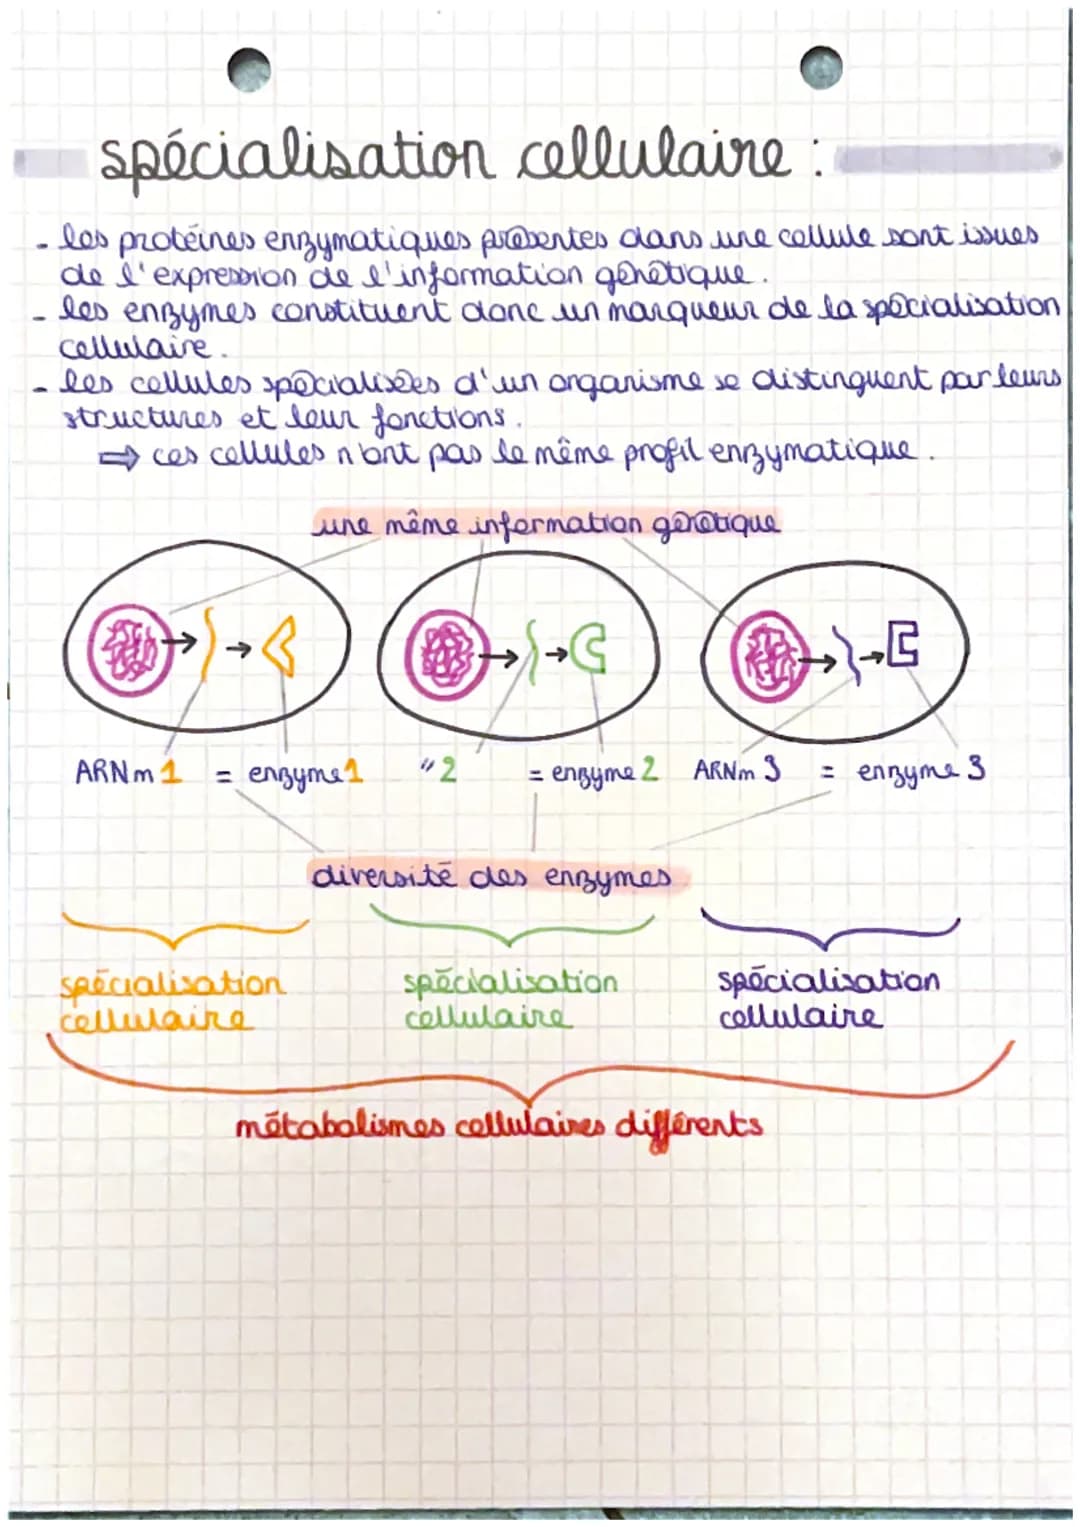 spécialisation cellulaire :
- les protéines enzymatiques présentes dans une cellule sont issues
de l'expression de l'information génétique.
- les enzymes constituent donc un marqueur de la spécialisation
cellulaire.
- les cellules spécialisées d'un organisme se distinguent par leurs
structures et leur fonctions.
⇒ ces cellules n'ont pas le même profil enzymatique.
une même information génétique
ARNm 1 = enzyme 1 " 2 = enzyme 2 ARNm 3 = enzyme 3
diversité des enzymes
spécialisation spécialisation spécialisation
cellulaire cellulaire cellulaire
métabolismes cellulaires différents